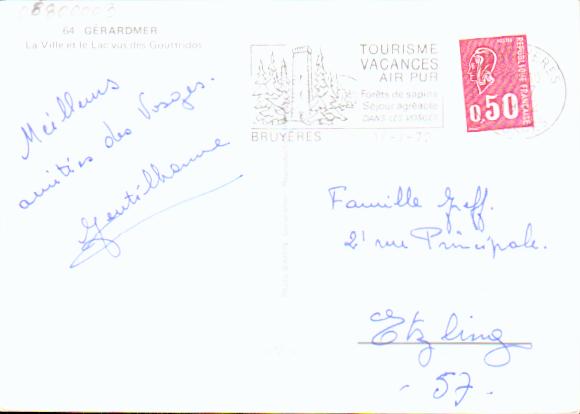 64 GERARDMER
La Ville et le Lac vus des Gouttridos
Meilleures
amitiés des Vosges.
Gentilhomme
TOURISME
VACANCES
AIR PUR
Forêts de sapins
Séjour agréable
DANS LES VOSGES
BRUYÈRES
POSTES
REPUBLIQUE FRANÇAISE
0,50
Famille Jeff.
21 rue Principale.
Etzling
- 57.